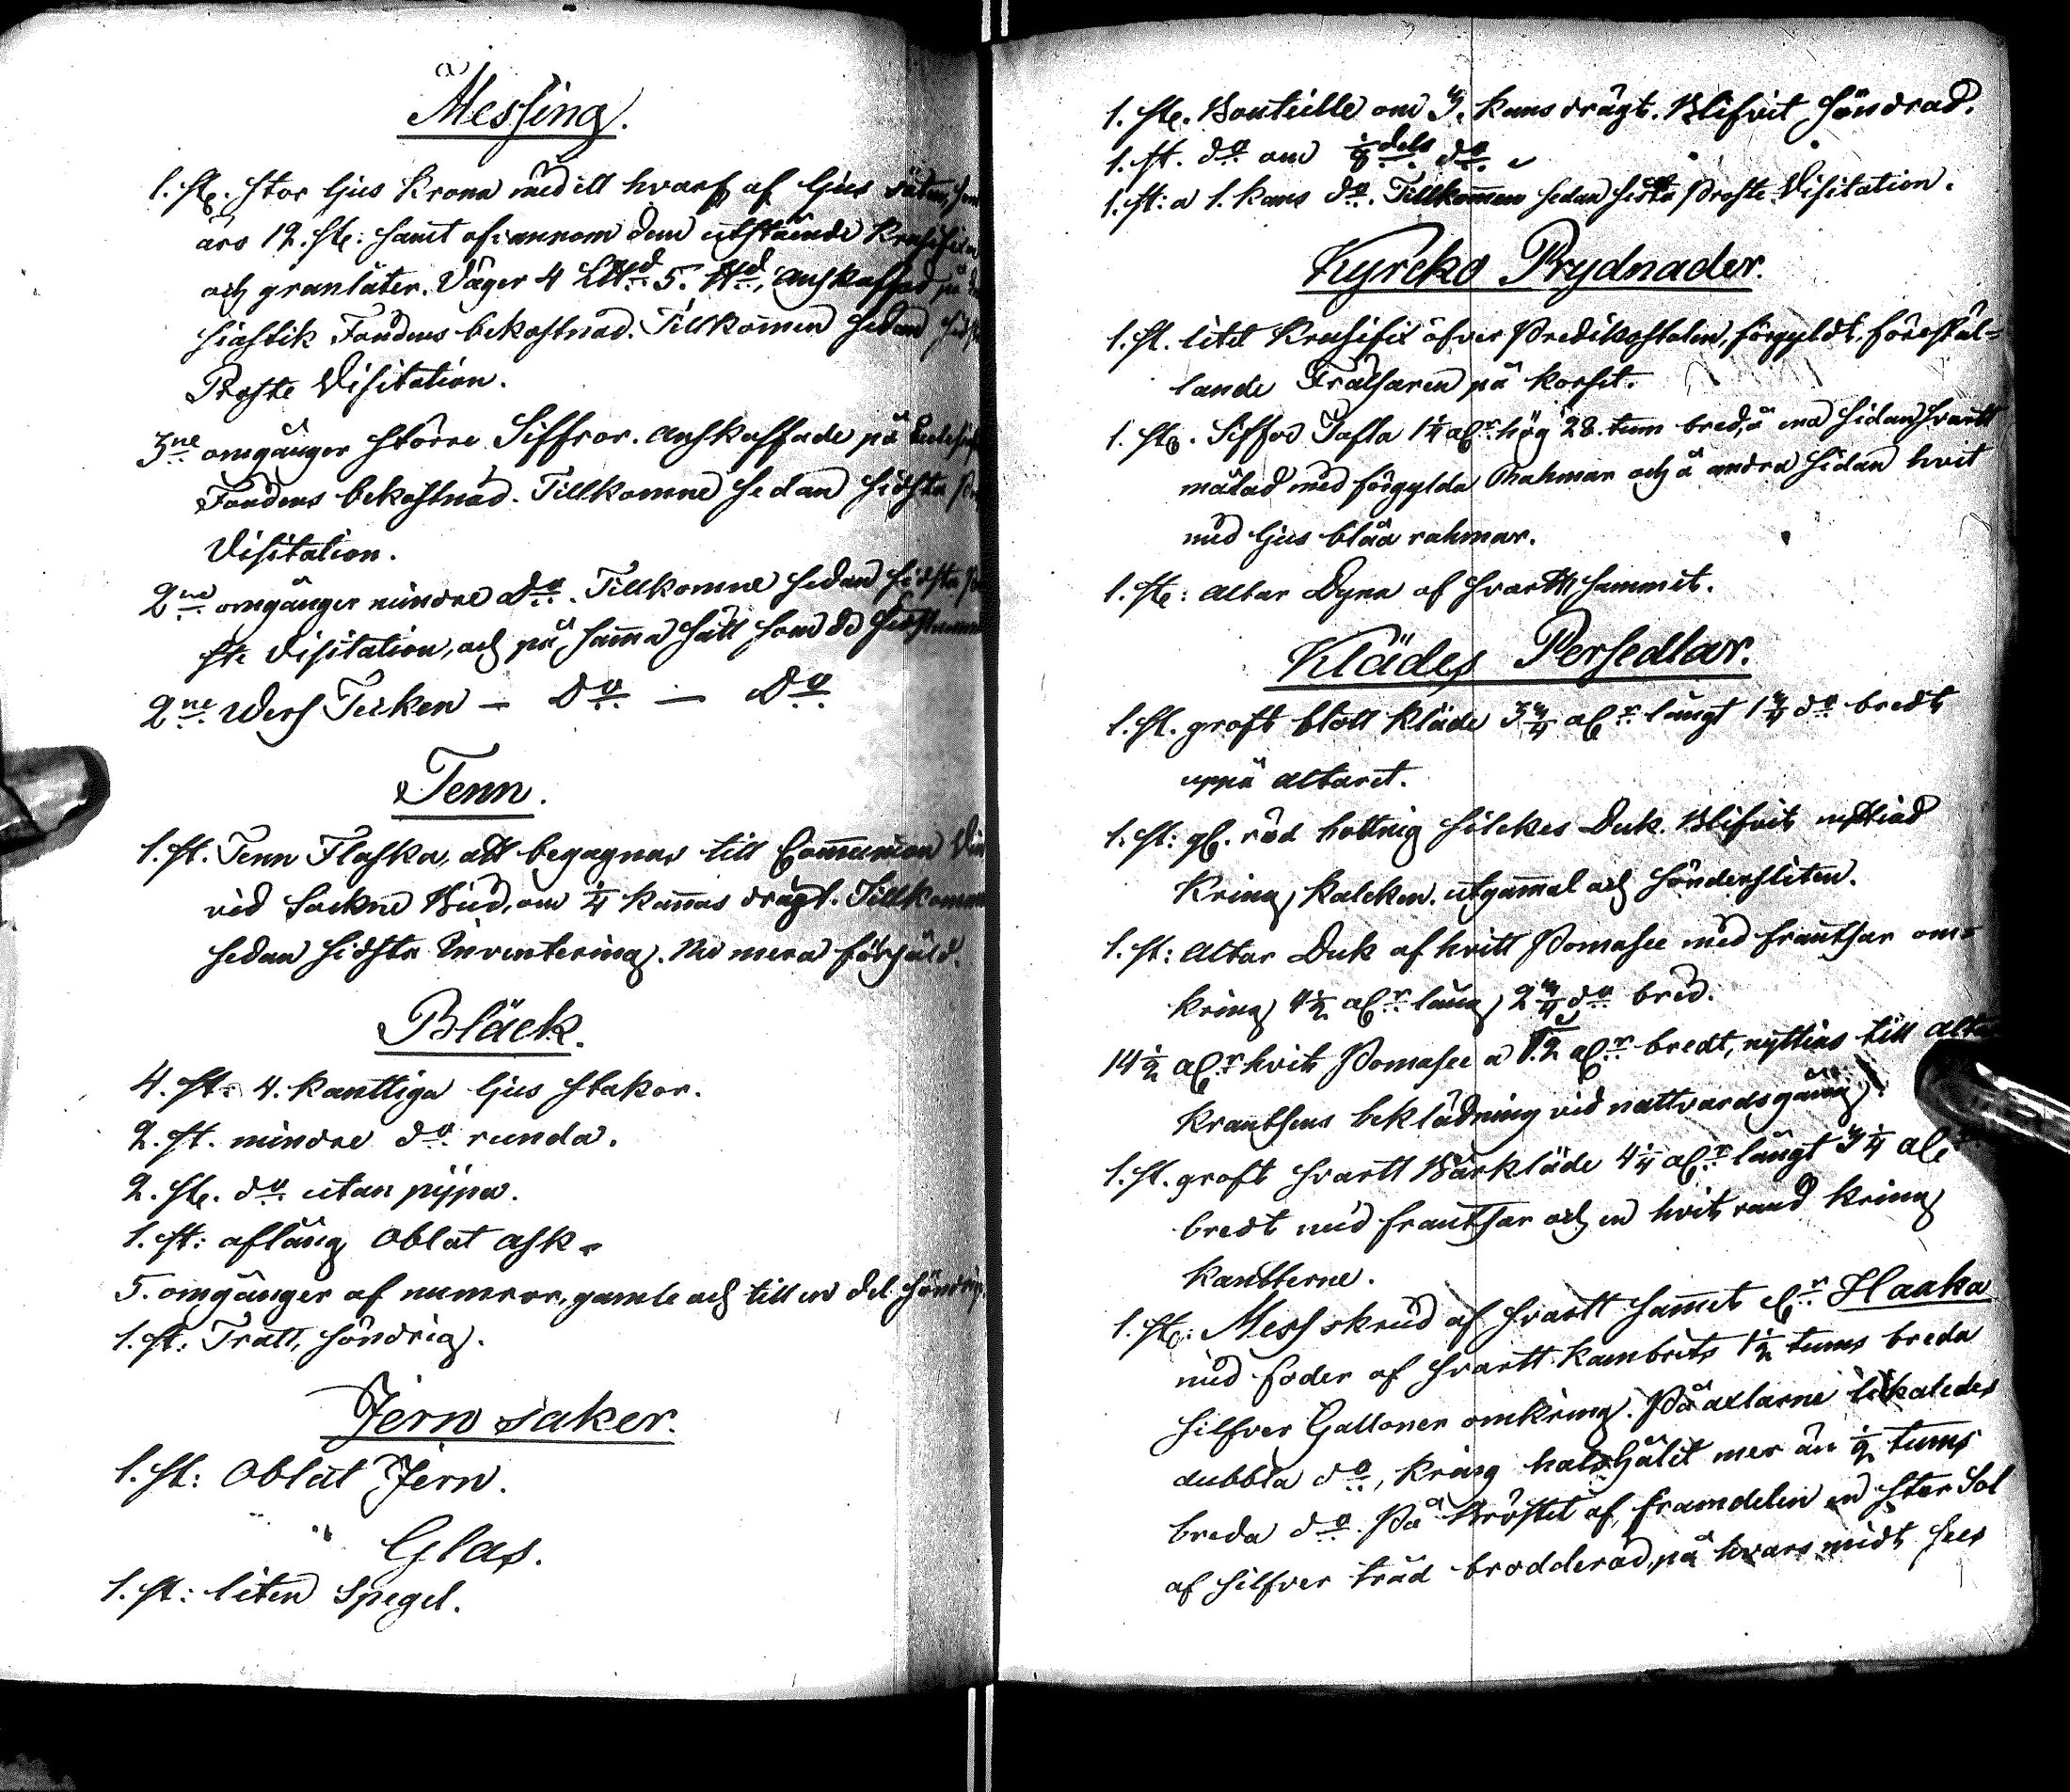 Messing.
1. st. stor ljus krona med ett hvarf af ljus
äro 12. st: samt ofvannom dem utstående
och granlåter. Väger 4 L℔d 5. ℔d, anskaffad på
siastik Fondens bekostnad. Tillkom̄en sedan
Proste Visitation.
3ne omgånger större Siffror. anskaffade på
Fondens bekostnad. Tillkomne sedan sidsta
Visitation.
2ne omgånger mindre do. Tillkomne sedan sidsta
ste Visitation, och på sam̄a sätt som de
2ne Vers Tecken — Do — Do
Tenn.
1. st. Tenn Flaska, att begagnas till Com̄union
vid Sockne Bud, om ¼ kan̄as drägt. Tillkommen
sedan sidsta Inventering. Nu mera försåld.
Bläck.
4. st: 4. kanttiga ljus stakar.
2. st. mindre do runda.
2. st. do utan pijpa.
1. st: aflång oblat ask.
5. omgånger af numror, gamle och till en del söndrig.
1. st: Tratt, söndrig.
Jern saker.
1. st: Oblat Jern.
Glas.
1. st: liten Spegel.
1. st. Bouteille om 3. kans drägt. Blifvit söndrad.
1. st. do om ⅛ dels do
1. st: a 1. kans do. Tillkom̄en sedan sista Proste Visitation.
Kyrcko Prydnader.
1. st. litet Krusifix öfver Predikostolen, förgyldt, förestäl-
lande Frälsaren på korset.
1. st. Siffro Tafla 1¼ alr. hög 28. tum bred, å ena sidan svartt
målad med förgylda Rahmar och å andra sidan hvit
med ljus blåa rahmar.
1. st: altar Dyna af svartt sammet.
Klädes Persedlar.
1. st. groft blått kläde 3¾ alr. långt 1¾ do bredt
uppå altaret.
1. st: gl. röd bottnig silckes Duk. Blifvit nyttiad
kring kalcken. utgam̄al och söndersliten.
1. st: Altar Duk af hvitt Pomasee med frantsar om-
kring 4½ alr. lång 2¾ do bred.
14½ alr hvit Pomasee a alr. bredt, nyttias till
krantsens beklädning vid nattvardsgång.
1. st. groft svartt Bårkläde 4¼ alr. långt 3¼ al.
bredt med frantsar och en hvit rand kring
kantterne.
1. st: Mess skrud af svartt sam̄et el.r Haaka
med foder af svartt kambrits 1½ tums breda
silfver Galloner omkring. På axlarne likaledes
dubbla do, kring halshålet mer än ½ tums
breda do. På Bröstet af framdelen en stor Sol
af silfver tråd brodderad, på hvars midt sees